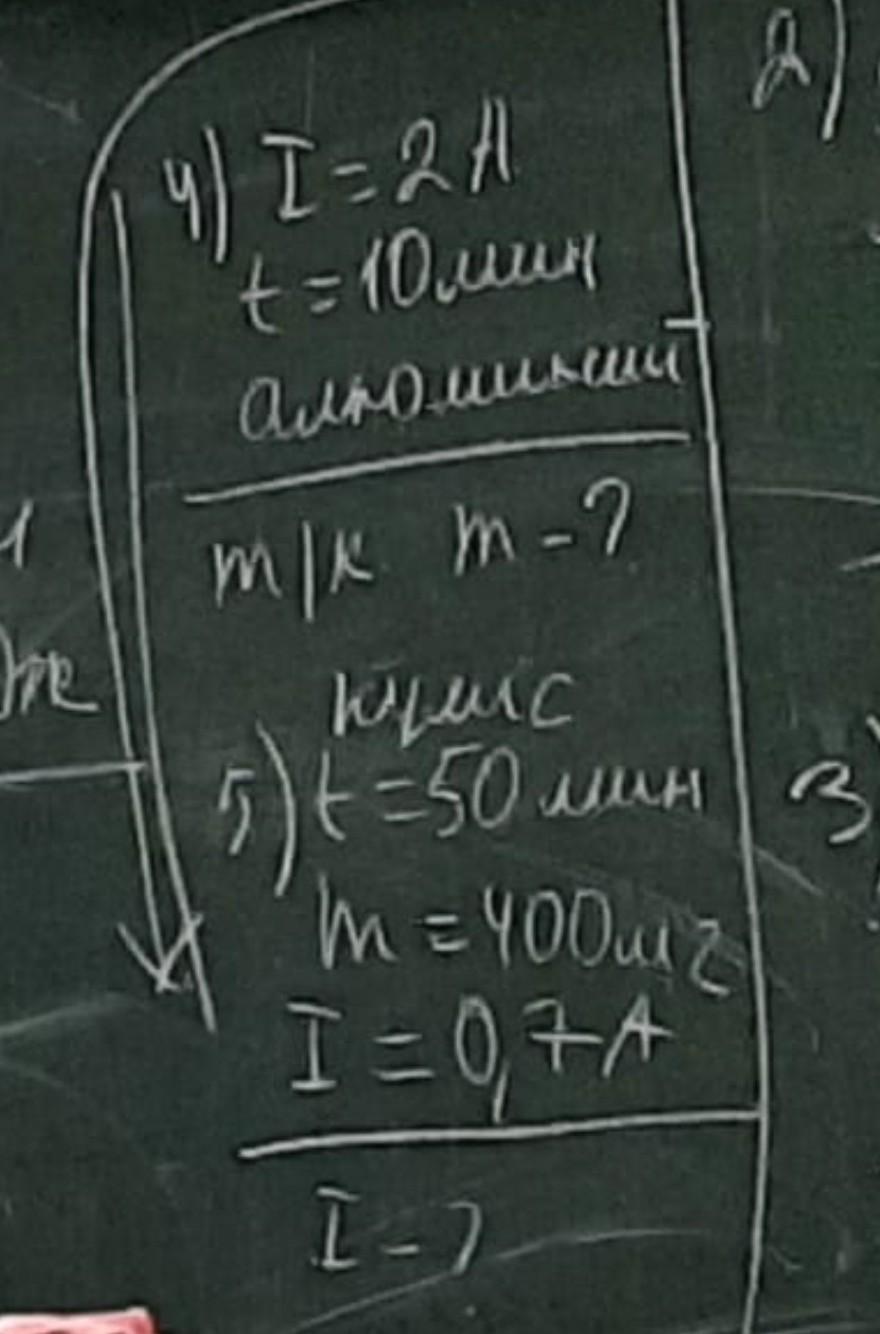 2)
4) I = 2 A
t = 10 мин
алюминий
m/к m - ?
5) t = 50 мин
m = 400 мг
I = 0,7 A
I - ?
3)